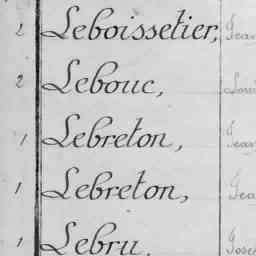 2 Leboissetier, Jean
2 Lebouc, Loui
1 Lebreton, Jean
1 Lebreton, Jea
1 Lebru, Jose